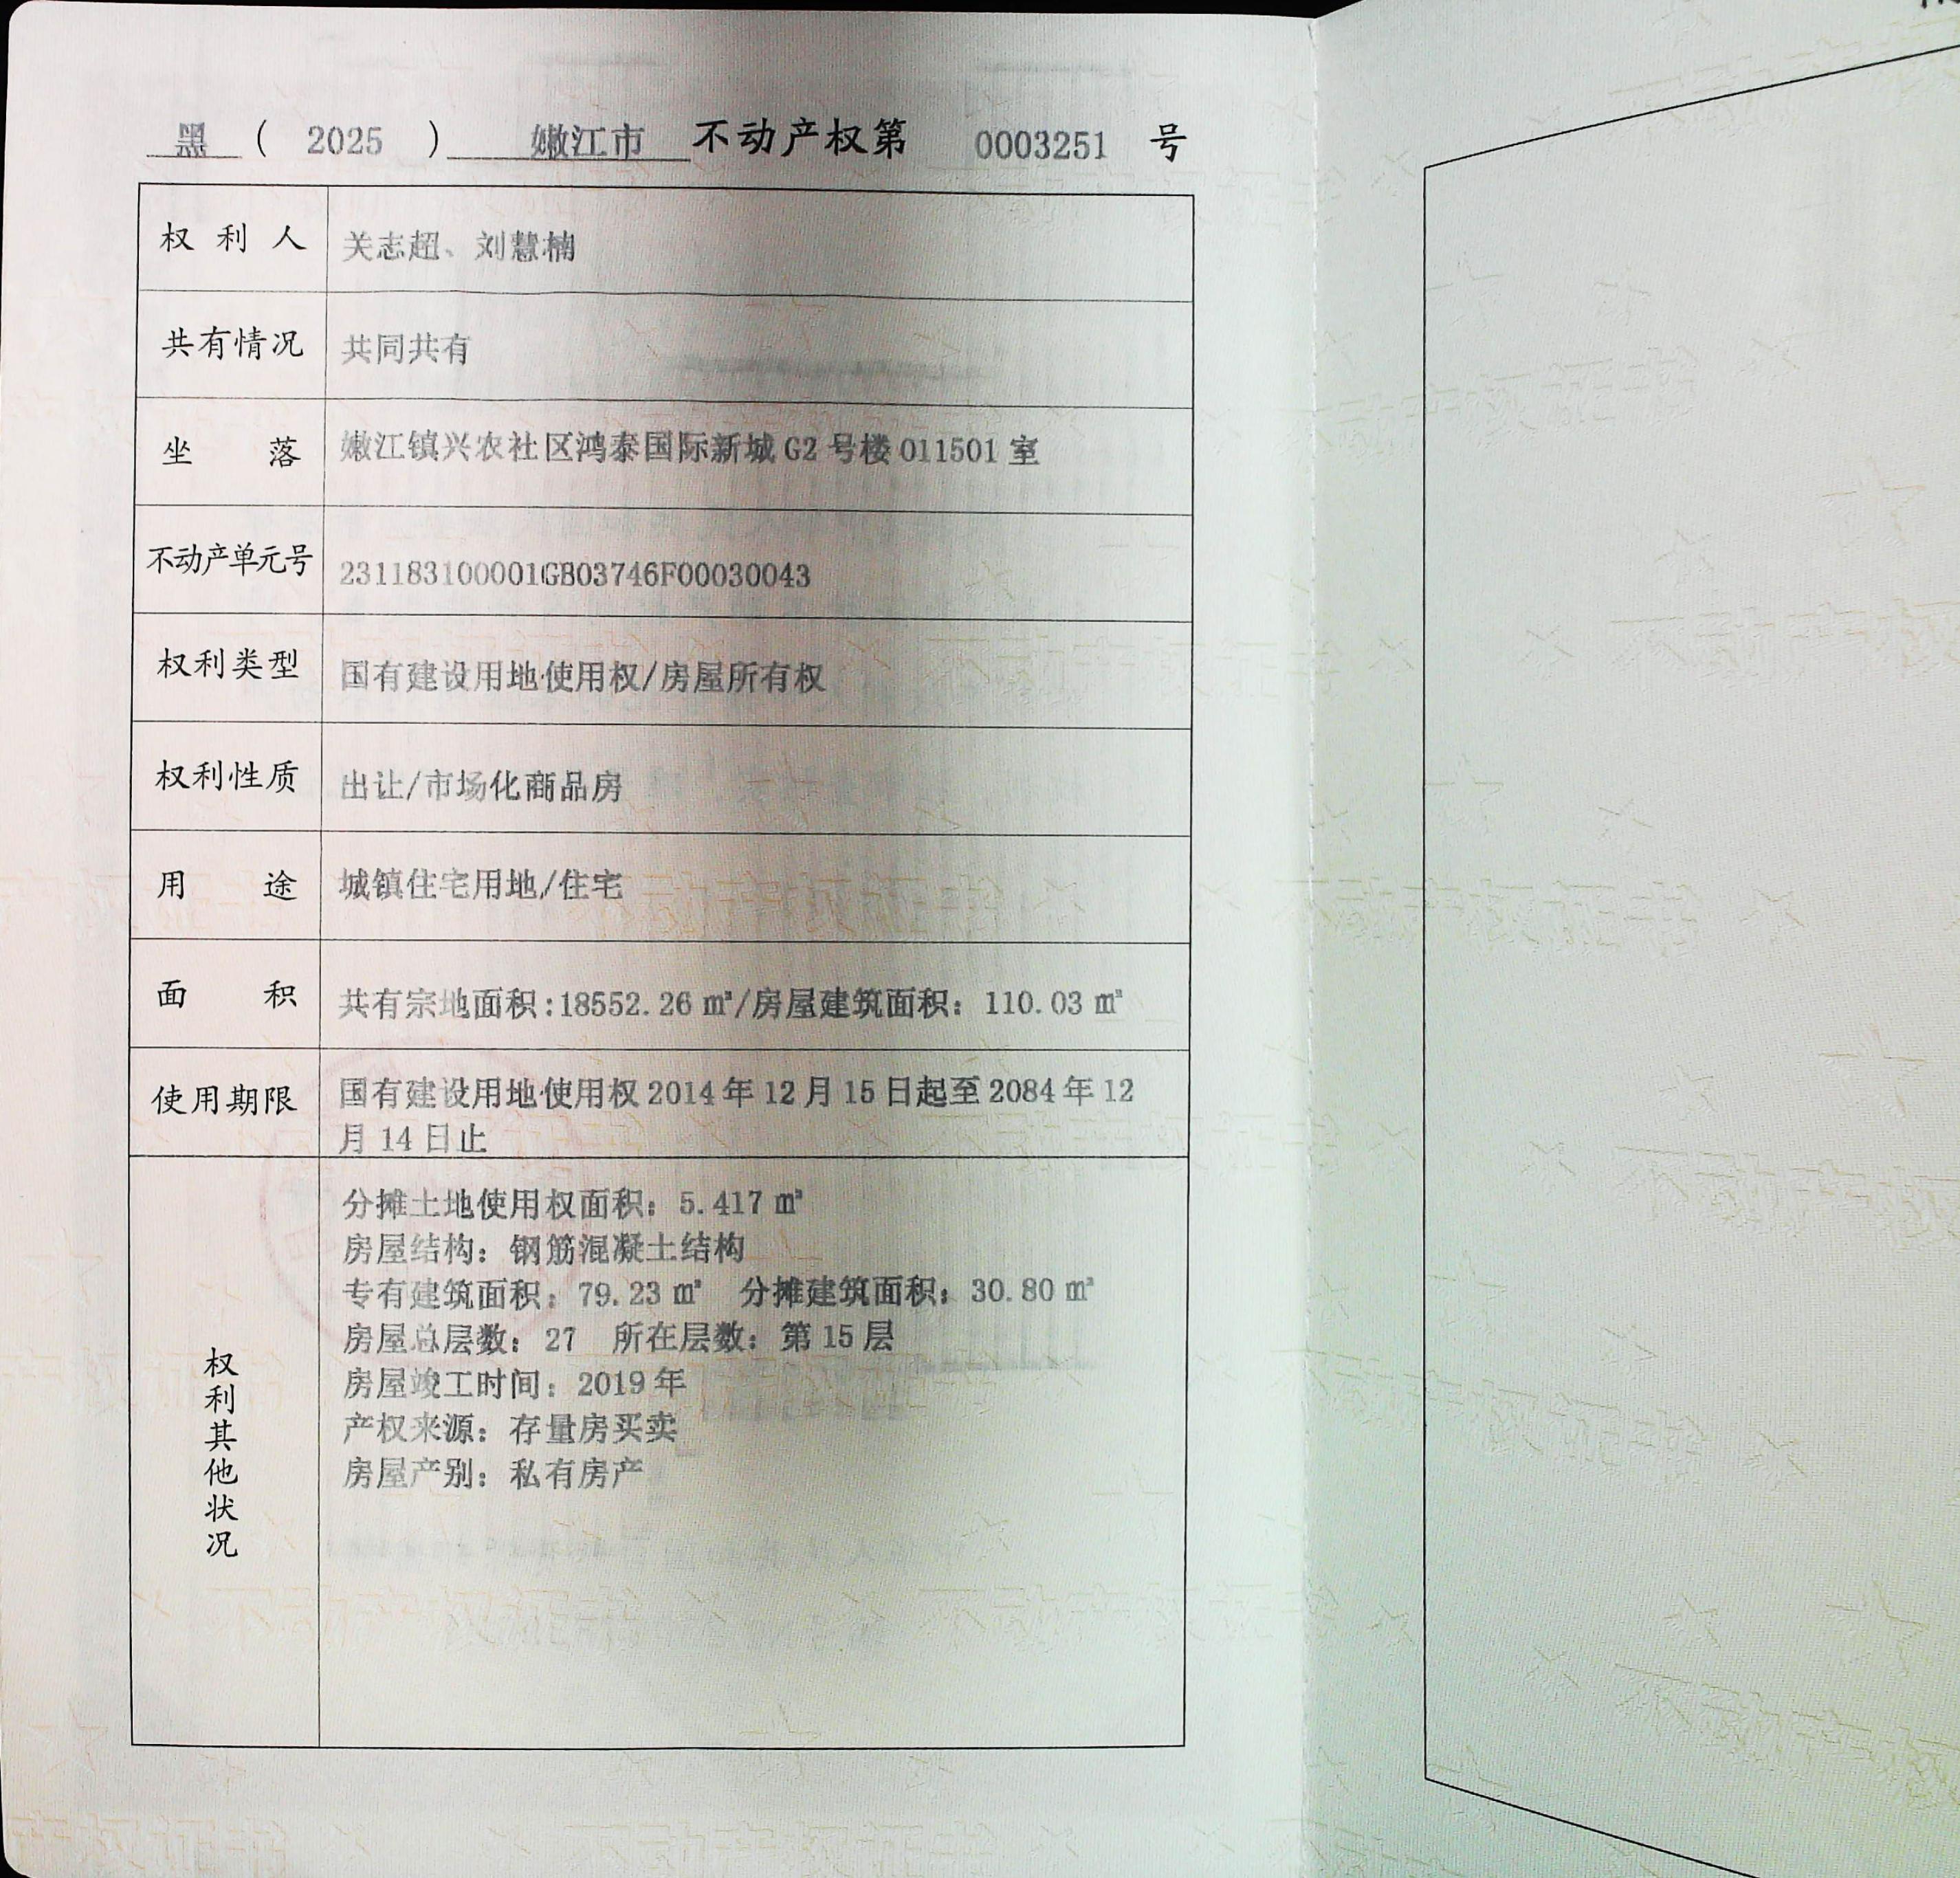 黑 ( 2025 ) 嫩江市 不动产权第 0003251 号
权利人 关志超、刘慧楠
共有情况 共同共有
坐落 嫩江镇兴农社区鸿泰国际新城 G2 号楼 011501 室
不动产单元号 231183100001GB03746F00030043
权利类型 国有建设用地使用权/房屋所有权
权利性质 出让/市场化商品房
用途 城镇住宅用地/住宅
面积 共有宗地面积:18552.26 ㎡/房屋建筑面积：110.03 ㎡
使用期限 国有建设用地使用权 2014 年 12 月 15 日起至 2084 年 12
月 14 日止
权利其他状况
分摊土地使用权面积：5.417 ㎡
房屋结构：钢筋混凝土结构
专有建筑面积：79.23 ㎡ 分摊建筑面积：30.80 ㎡
房屋总层数：27 所在层数：第 15 层
房屋竣工时间：2019 年
产权来源：存量房买卖
房屋产别：私有房产